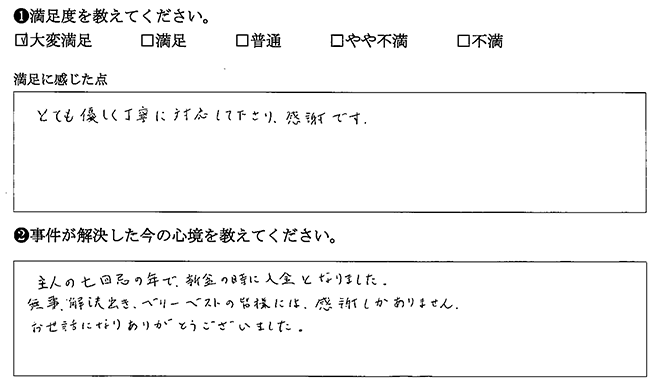 ❶満足度を教えてください。
☑大変満足 □満足 □普通 □やや不満 □不満
満足に感じた点
とても優しく丁寧に対応して下さり、感謝です.
❷事件が解決した今の心境を教えてください。
主人の七回忌の年で、新盆の時に入金となりました.
無事、解決出き、ベリーベストの皆様には、感謝しかありません.
お世話になりありがとうございました。